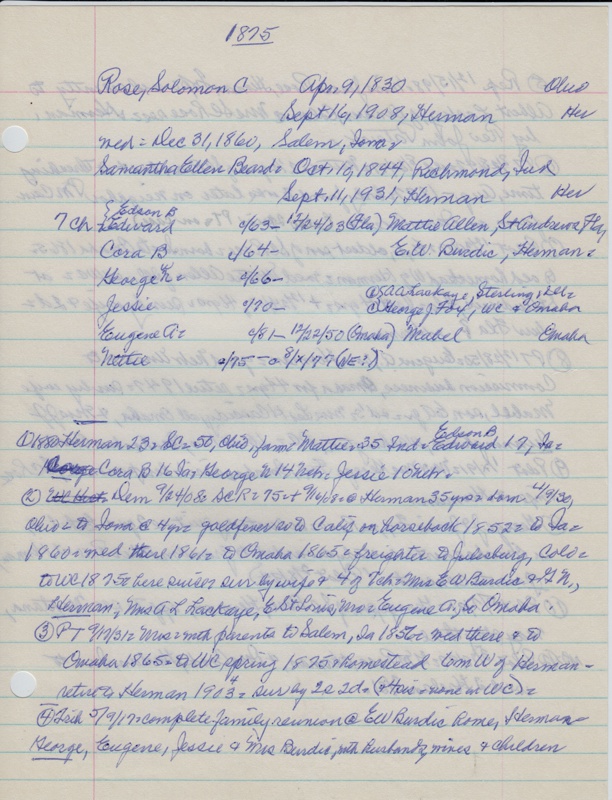 1875
Rose, Solomon C Apr 9, 1830 Ohio
Sept 16, 1908, Herman Her
wed = Dec 31, 1860, Salem, Iowa
Samantha Ellen Beard = Oct. 1844, Richmond, Ind
Sept. 11, 1931, Herman Her
Edson B
7 ch Edward c/63 - 12/24/03 (Fla) Mattie Allen, St Andrews Fla
Cora B c/64 - E.W. Burdic, Herman =
George c/66 -
① A Lackaye, Sterling,
Jessie c/70 - ② George J Fox, WC & Omaha
Eugene A = c/81 - 12/22/50 (Omaha) Mabel Omaha
Nettie c/75 - (NE?)
① 1880 Herman 23 = SC = 50, Ohio, farm = Mattie = 35 Ind = Edward 17, Ia =
Edson B
Cora B 16 Ia, George 14 Neb = Jessie 10 Neb =
② Dem 9/24/08 = SCR = 75 + 9/16/08 @ Herman 35 yrs = born 4/9/30,
Ohio = to Iowa @ 4 yr = gold fever so to Calif on horseback 1852 = to Ia =
1860 = wed there 1861 = to Omaha 1865 = freighter to Julesburg, Colo =
to WC 1875 = here since = sur by wife & 4 of 7 ch = Mrs EW Burdic &
Herman, Mrs A L Lackaye, E St Louis, Mo = Eugene A., So Omaha.
③ PT 9/17/31 = Mrs = with parents to Salem, Ia = wed there & to
Omaha 1865 = to WC spring 1875 = homestead 6 m W of Herman -
retire to Herman 1903 = sur by 2s 2d = (none in WC) =
④ Trib 5/9/17 = complete family reunion @ EW Burdic home, Herman =
George, Eugene, Jessie & Mrs Burdic, with husbands, wives & children